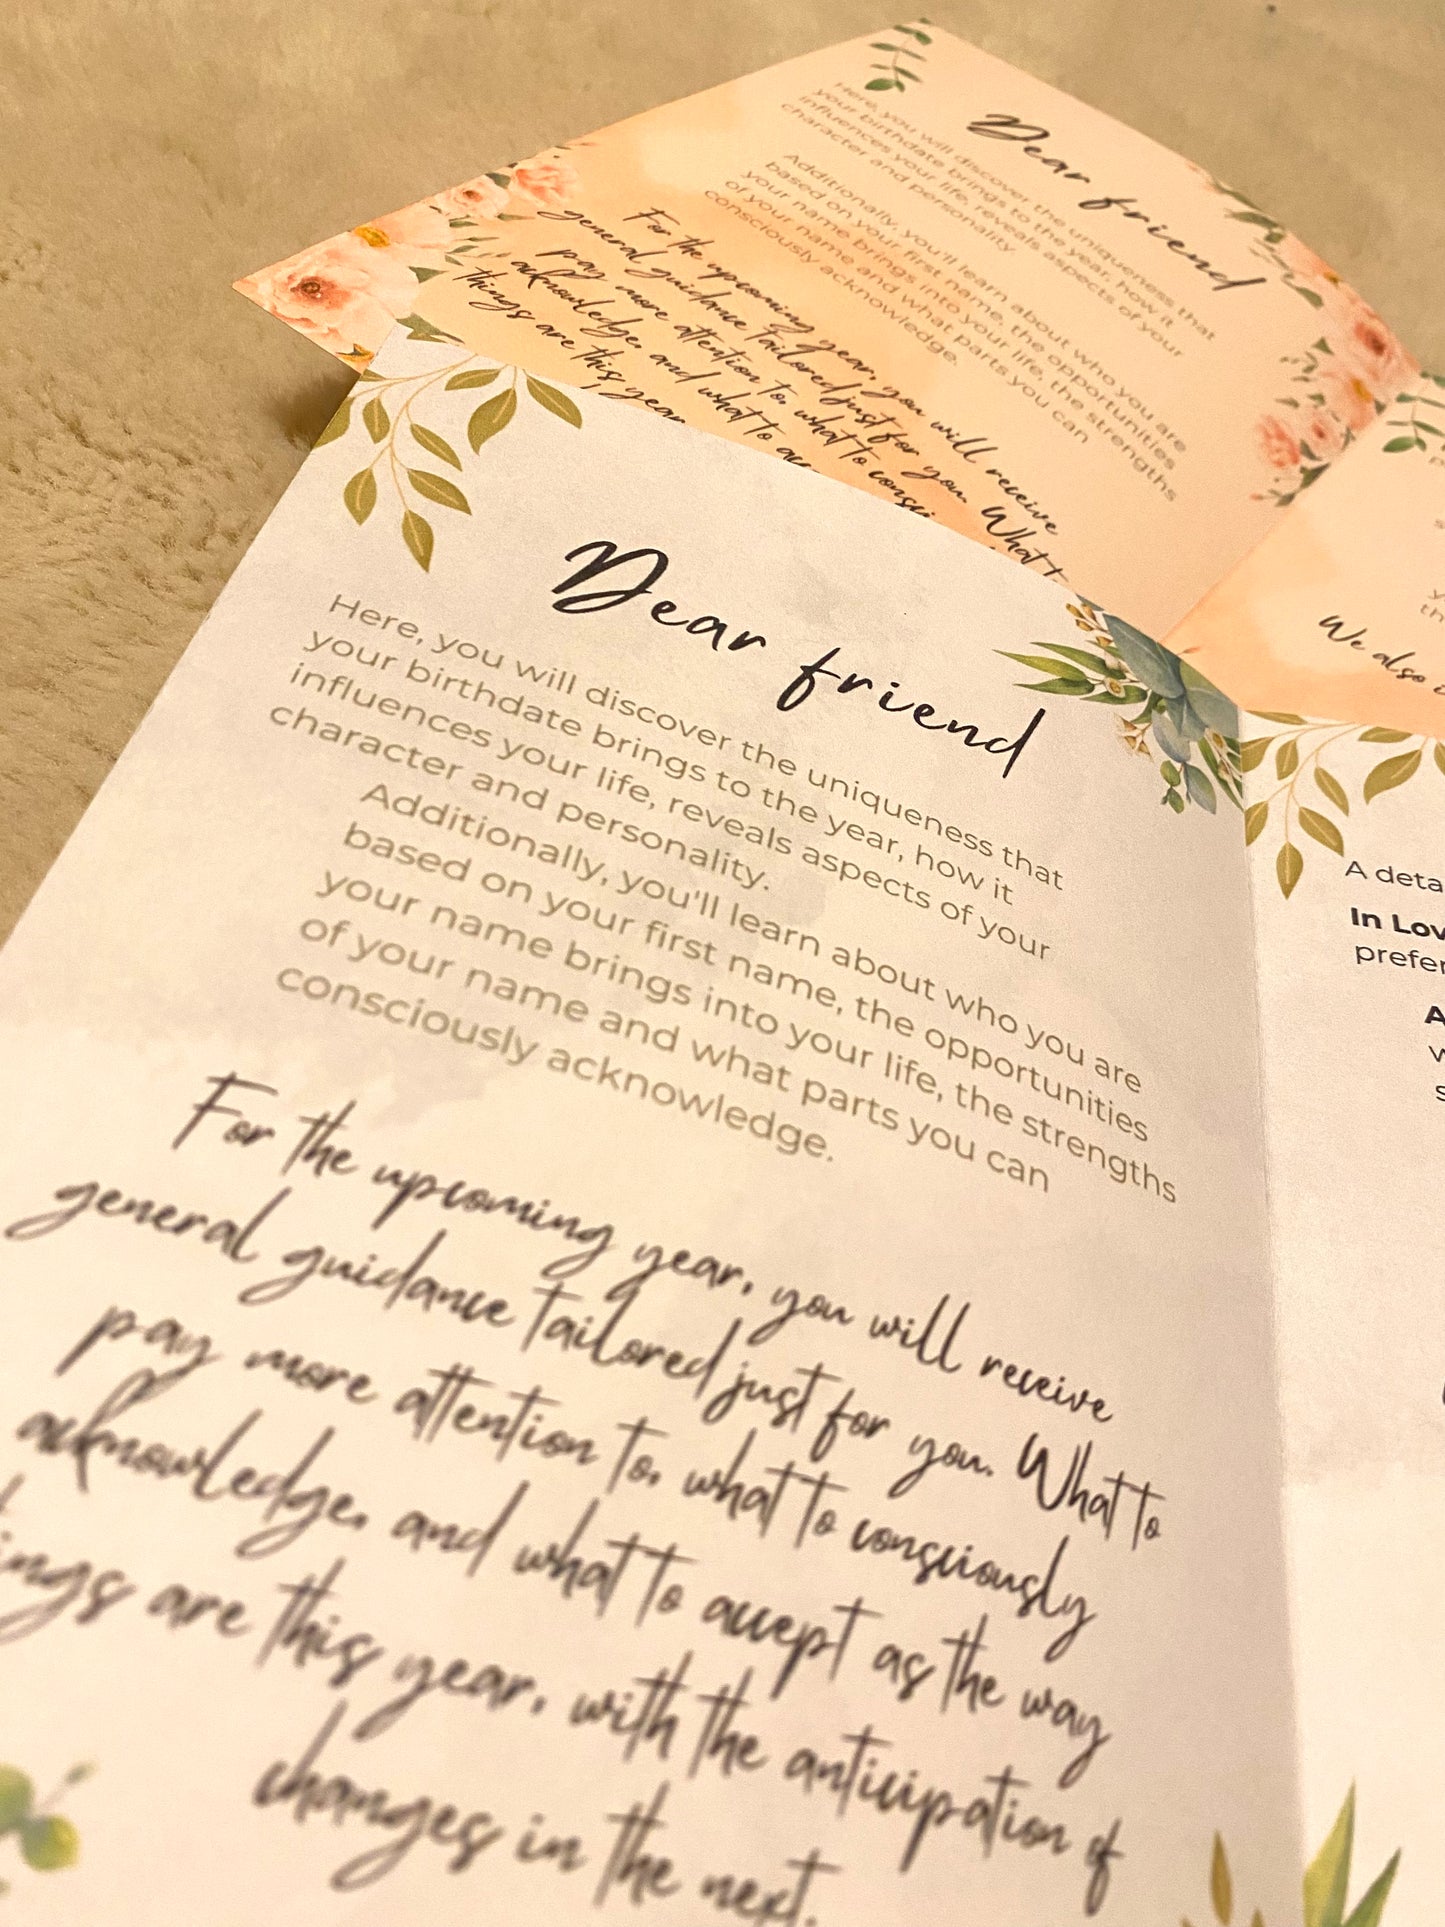 Dear friend
Here, you will discover the uniqueness that
your birthdate brings to the year, how it
influences your life, reveals aspects of your
character and personality.
Additionally, you'll learn about who you are
based on your first name, the opportunities
your name brings into your life, the strengths
of your name and what parts you can
consciously acknowledge.
For the upcoming year, you will receive
general guidance tailored just for you. What to
pay more attention to, what to consciously
acknowledge, and what to
things are this year
We also
Dear friend
Here, you will discover the uniqueness that
your birthdate brings to the year, how it
influences your life, reveals aspects of your
character and personality.
Additionally, you'll learn about who you are
based on your first name, the opportunities
your name brings into your life, the strengths
of your name and what parts you can
consciously acknowledge.
For the upcoming year, you will receive
general guidance tailored just for you. What to
pay more attention to, what to consciously
acknowledge, and what to accept as the way
things are this year, with the anticipation of
changes in the next.
A deta
In Lov
prefer